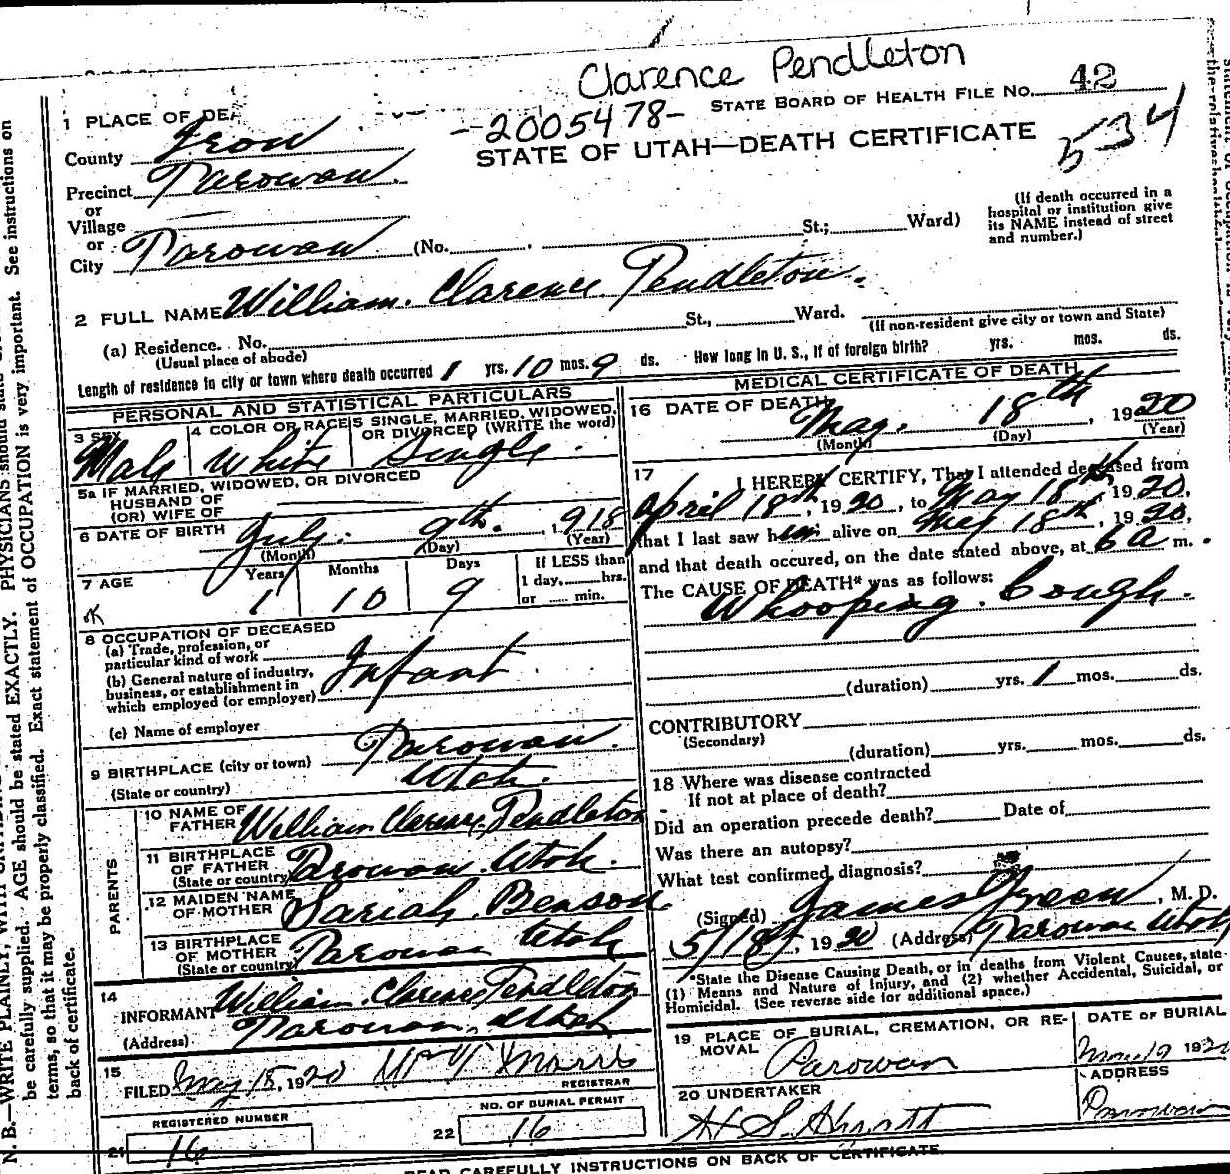 Clarence Pendleton
STATE BOARD OF HEALTH FILE No. 42
-2005478-
534
STATE OF UTAH—DEATH CERTIFICATE
1 PLACE OF DEA
County Iron
Precinct Parowan
or
Village
or
City Parowan (No. St.; Ward)
(If death occurred in a
hospital or institution give
its NAME instead of street
and number.)
2 FULL NAME William Clarence Pendleton
(a) Residence. No. St., Ward.
(Usual place of abode)
(If non-resident give city or town and State)
Length of residence in city or town where death occurred 1 yrs. 10 mos. 9 ds. How long in U. S., if of foreign birth? yrs. mos. ds.
PERSONAL AND STATISTICAL PARTICULARS
3 SEX Male
4 COLOR OR RACE White
5 SINGLE, MARRIED, WIDOWED,
OR DIVORCED (WRITE the word)
Single
5a IF MARRIED, WIDOWED, OR DIVORCED
HUSBAND OF
(OR) WIFE OF
6 DATE OF BIRTH July 9th. 1918
(Month) (Day) (Year)
7 AGE Years Months Days If LESS than
1 day, hrs.
or min.
1 10 9
8 OCCUPATION OF DECEASED
(a) Trade, profession, or
particular kind of work
(b) General nature of industry,
business, or establishment in
which employed (or employer)
Infant
(c) Name of employer
9 BIRTHPLACE (city or town) Parowan
(State or country) Utah.
PARENTS
10 NAME OF
FATHER William Clarence Pendleton
11 BIRTHPLACE
OF FATHER
(State or country) Parowan Utah.
12 MAIDEN NAME
OF MOTHER Sariah Benson
13 BIRTHPLACE
OF MOTHER
(State or country) Parowan Utah
14
INFORMANT William Clarence Pendleton
(Address) Parowan, Utah
15
FILED May 18, 1920 Morris
REGISTRAR
REGISTERED NUMBER
21 16
NO. OF BURIAL PERMIT
22 16
MEDICAL CERTIFICATE OF DEATH
16 DATE OF DEATH May. 18th, 1920
(Month) (Day) (Year)
17 I HEREBY CERTIFY, That I attended deceased from
April 18th, 1920, to May 18th, 1920,
that I last saw him alive on May 18th, 1920,
and that death occured, on the date stated above, at 6 a m.
The CAUSE OF DEATH* was as follows:
Whooping Cough.
(duration) yrs. 1 mos. ds.
CONTRIBUTORY
(Secondary)
(duration) yrs. mos. ds.
18 Where was disease contracted
If not at place of death?
Did an operation precede death? Date of
Was there an autopsy?
What test confirmed diagnosis?
(Signed) James Green, M. D.
5/18, 1920 (Address) Parowan Utah
*State the Disease Causing Death, or in deaths from Violent Causes, state
(1) Means and Nature of Injury, and (2) whether Accidental, Suicidal, or
Homicidal. (See reverse side for additional space.)
19 PLACE OF BURIAL, CREMATION, OR RE-
MOVAL Parowan
DATE OF BURIAL
May 19 192
20 UNDERTAKER
ADDRESS
Parowan
READ CAREFULLY INSTRUCTIONS ON BACK OF CERTIFICATE.
N. B.—WRITE PLAINLY, WITH
be carefully supplied. AGE should be stated EXACTLY. PHYSICIANS should state
terms, so that it may be properly classified. Exact statement of OCCUPATION is very important. See instructions on
back of certificate.